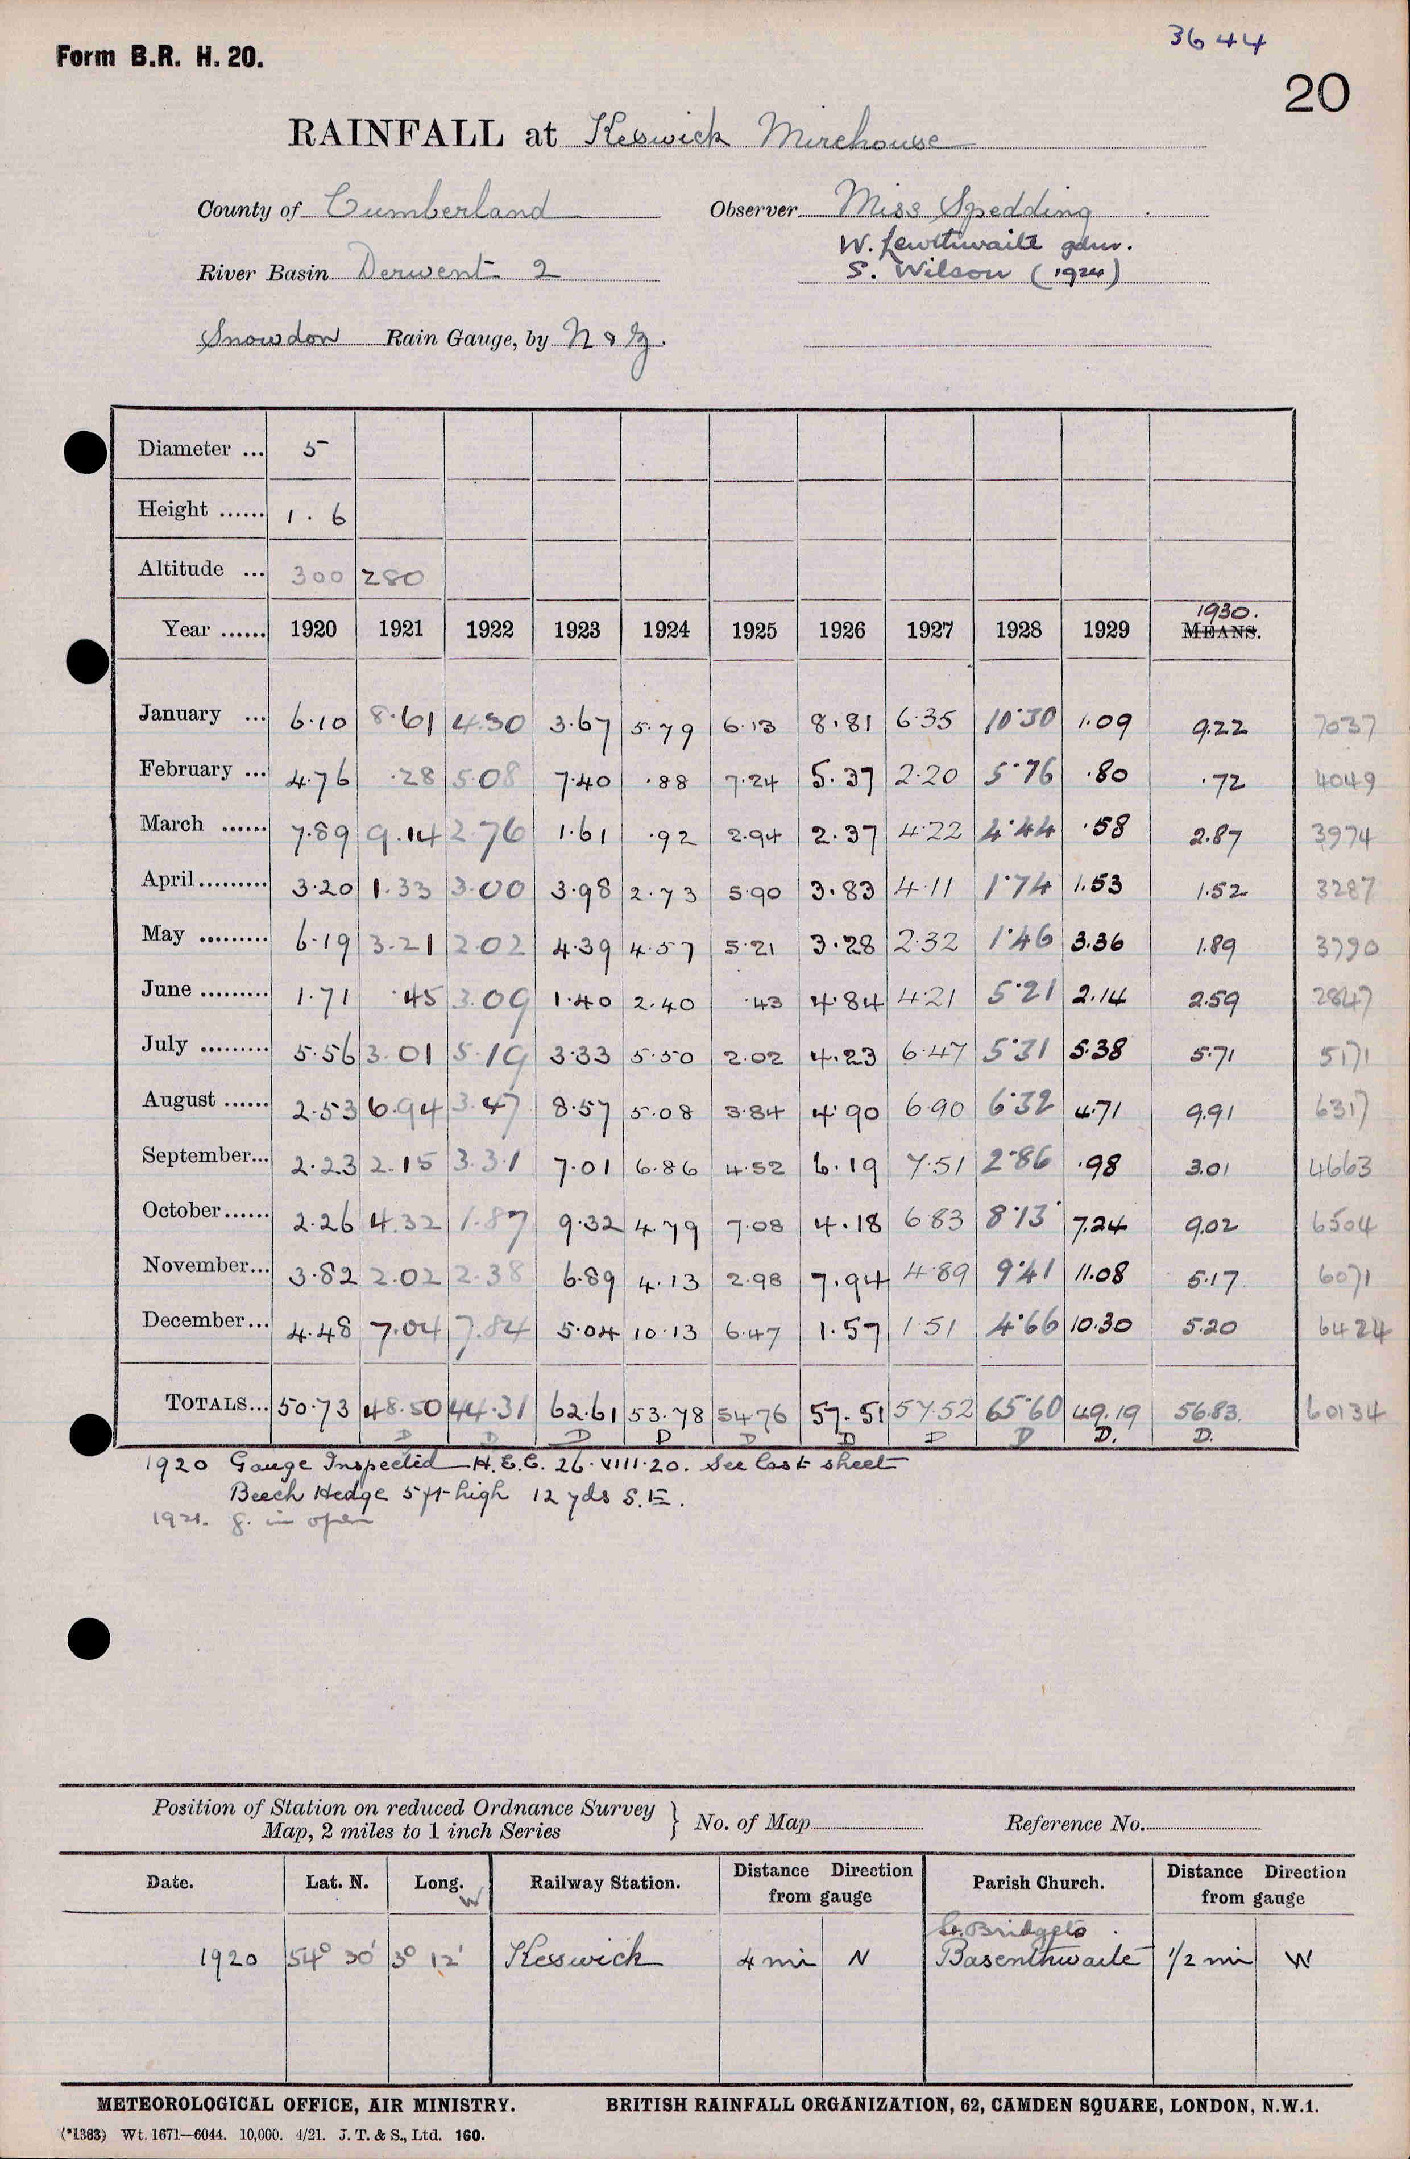 3644
Form B.R. H. 20.
20
RAINFALL at Keswick Mirehouse
County of Cumberland Observer Miss Spedding
W. Lewthwaite gdnr.
River Basin Derwent 2 S. Wilson (1924)
Snowdon Rain Gauge, by N & Z.
Diameter ... 5
Height ...... 1.6
Altitude ... 300 280
1930.
Year ...... 1920 1921 1922 1923 1924 1925 1926 1927 1928 1929 MEANS.
January ... 6.10 8.61 4.30 3.67 5.79 6.13 8.81 6.35 10.30 1.09 9.22 7037
February ... 4.76 .28 5.08 7.40 .88 7.24 5.37 2.20 5.76 .80 .72 4049
March ...... 7.89 9.14 2.76 1.61 .92 2.94 2.37 4.22 4.44 .58 2.87 3974
April......... 3.20 1.33 3.00 3.98 2.73 5.90 3.83 4.11 1.74 1.53 1.52 3287
May ......... 6.19 3.21 2.02 4.39 4.57 5.21 3.28 2.32 1.46 3.36 1.89 3790
June ......... 1.71 .45 3.09 1.40 2.40 .43 4.84 4.21 5.21 2.14 2.59 2847
July ......... 5.56 3.01 5.19 3.33 5.50 2.02 4.23 6.47 5.31 5.38 5.71 5171
August ...... 2.53 6.94 3.47 8.57 5.08 3.84 4.90 6.90 6.32 4.71 9.91 6317
September... 2.23 2.15 3.31 7.01 6.86 4.52 6.19 7.51 2.86 .98 3.01 4663
October...... 2.26 4.32 1.87 9.32 4.79 7.08 4.18 6.83 8.13 7.24 9.02 6504
November... 3.82 2.02 2.38 6.89 4.13 2.98 7.94 4.89 9.41 11.08 5.17 6071
December... 4.48 7.04 7.84 5.04 10.13 6.47 1.57 1.51 4.66 10.30 5.20 6424
TOTALS... 50.73 48.50 44.31 62.61 53.78 54.76 57.51 57.52 65.60 49.19 56.83. 60134
D D D D D D D D D. D.
1920 Gauge Inspected H.E.C. 26.VIII.20. See last sheet
Beech Hedge 5 ft high 12 yds S.E.
1921. g. in open
Position of Station on reduced Ordnance Survey
Map, 2 miles to 1 inch Series } No. of Map Reference No.
Date. Lat. N. Long. W Railway Station. Distance Direction from gauge Parish Church. Distance Direction from gauge
St. Bridgets
1920 54° 30' 3° 12' Keswick 4 mi N Basenthwaite 1/2 mi W
METEOROLOGICAL OFFICE, AIR MINISTRY. BRITISH RAINFALL ORGANIZATION, 62, CAMDEN SQUARE, LONDON, N.W.1.
(*1383) Wt. 1671—6044. 10,000. 4/21. J. T. & S., Ltd. 160.